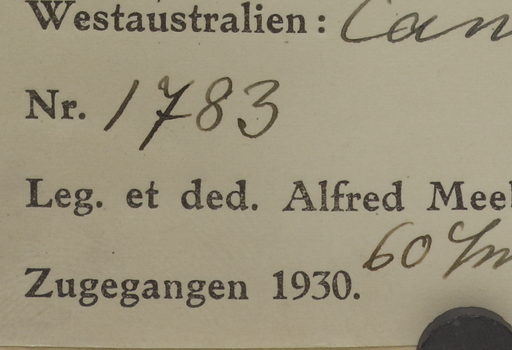 Westaustralien: Can
Nr. 1783
Leg. et ded. Alfred Mee
60
Zugegangen 1930.